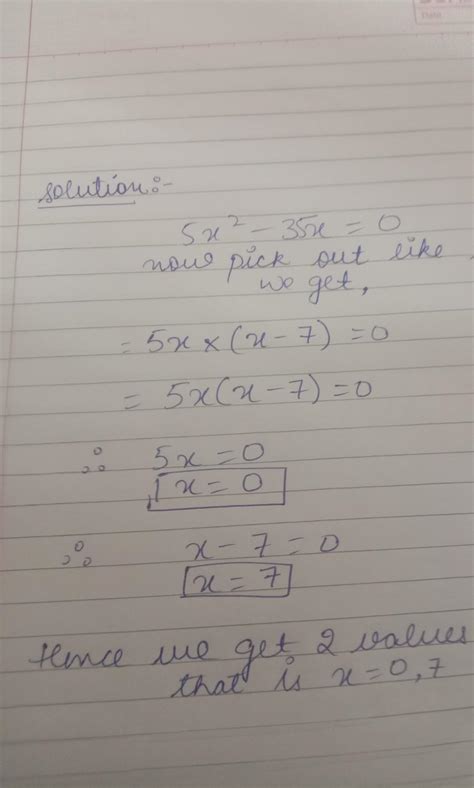 solution:-
5x² - 35x = 0
now pick out like
we get,
= 5x × (x - 7) = 0
= 5x(x - 7) = 0
∴ 5x = 0
x = 0
∴ x - 7 = 0
x = 7
Hence we get 2 values
that is x = 0, 7